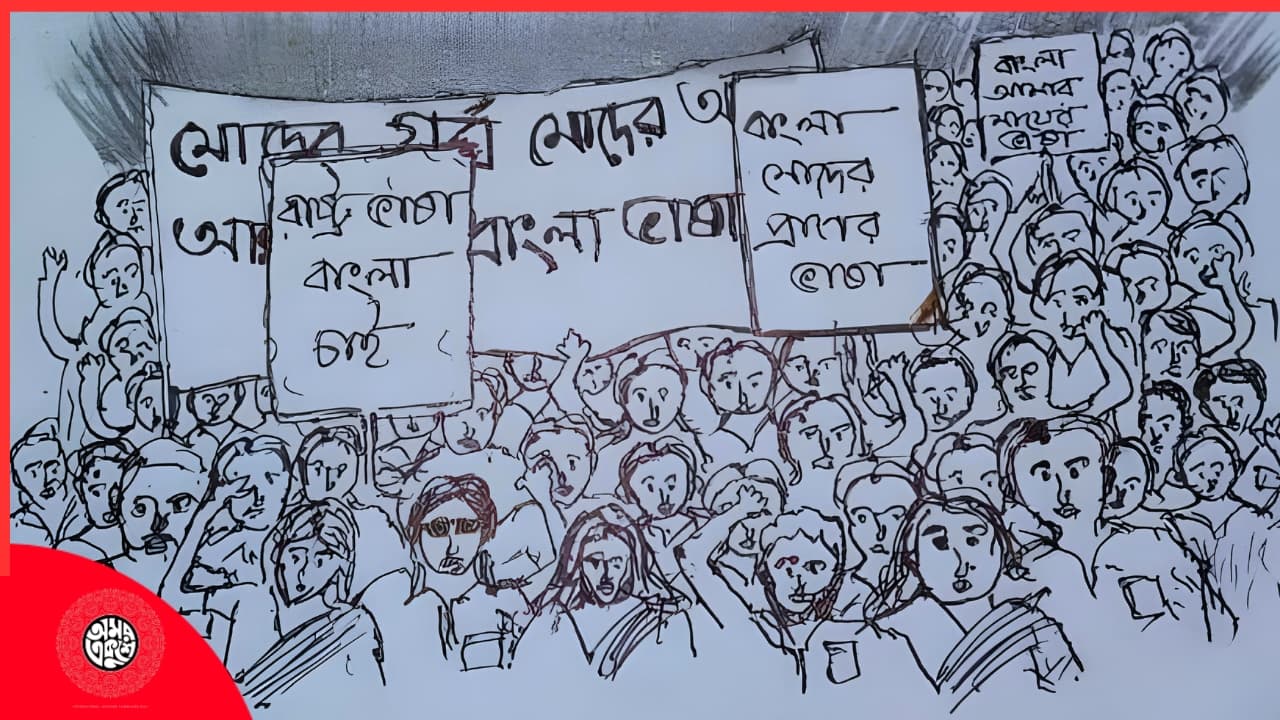 মোদের গর্ব মোদের আ
আ বাংলা ভাষা
রাষ্ট্র ভাষা
বাংলা
চাই
বাংলা
মোদের
প্রাণের
ভাষা
বাংলা
আমার
মায়ের
ভাষা
অমর
একুশে